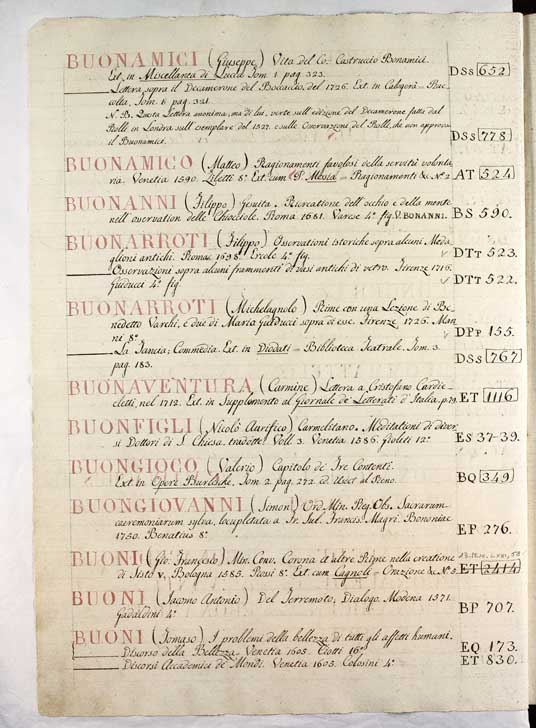 BUONAMICI (Giuseppe) Vita del Co: Castruccio Bonamici.
Ext. in Miscellanea di Lucca Tom. 1. pag. 323. DSS 652
Lettera sopra il Decamerone del Boccaccio, del 1726. Ext. in Calogerà = Rac-
colta, Tom. 1. pag. 321.
N. B. Questa Lettera anonima, ma di lui, verte sull'edizione del Decamerone fatta dal
Rolli in Londra sull'esemplare del 1527. e sulle Osservazioni del Rolli, che non approva
il Buonamici. DSS 778
BUONAMICO (Matteo) Ragionamenti favolosi della servitù volonta-
ria. Venetia 1590. Ziletti 8°. Ext. cum = Ragionamenti &c. N° 2 AT 524
BUONANNI (Filippo) Gesuita. Ricreatione dell'occhio e della mente
nell'osservation delle Chiocciole. Roma 1681. Varese 4° fig. V. BONANNI. BS 590.
BUONARROTI (Filippo) Osservationi istoriche sopra alcuni Meda-
glioni antichi. Roma 1698. Ercole 4° fig. DTT 523.
Osservazioni sopra alcuni frammenti di vasi antichi di vetro. Firenze 1716.
Guiducci 4° fig. DTT 522.
BUONARROTI (Michelagnolo) Rime con una Lezione di Be-
nedetto Varchi, e due di Mario Guiducci sopra di esse. Firenze, 1726. Man-
ni 8°. DPP 155.
La Tancia; Commedia. Ext. in Diodati = Biblioteca Teatrale. Tom. 3.
pag. 183. DSS 767
BUONAVENTURA (Carmine) Lettera a Cristofano
nel 1712. Ext. in Supplemento al Giornale de' Letterati d'Italia, p. 79. ET 1116
BUONFIGLI (Nicolò Aurifico) Carmelitano. Meditationi di diver-
si Dottori di S. Chiesa, tradotte. Voll. 3. Venetia 1586. Gioleti 12° ES 37-39.
BUONGIOCO (Valerio) Capitolo de' Tre Contenti.
Ext. in Opere Burlesche. Tom. 2. pag. 272. ed. BQ 349
BUONGIOVANNI (Simon) Ord. Min. Reg. Obs. Sacrarum
caeremoniarum sylva, locupletata a Fr. Jul. Francisc. Magri. Bononiae
1750. Benatius 8° EP 276.
BUONI (Gio: Francesco) Min. Conv. Corona et altre Rime nella creatione
di Sisto V. Bologna 1585. Rossi 8°. Ext. cum Cagnoli = Oratione &c. N° 5. ET 2414
BUONI (Jacomo Antonio) Del Terremoto, Dialogo. Modena 1571.
Gadaldini 4° BP 707.
BUONI (Tomaso) I problemi della bellezza di tutti gli affetti humani.
Discorso della Bellezza. Venetia 1605. Ciotti 16° EQ 173.
Discorsi Accademici de' Mondi. Venetia 1605. Colosini 4° ET 830.